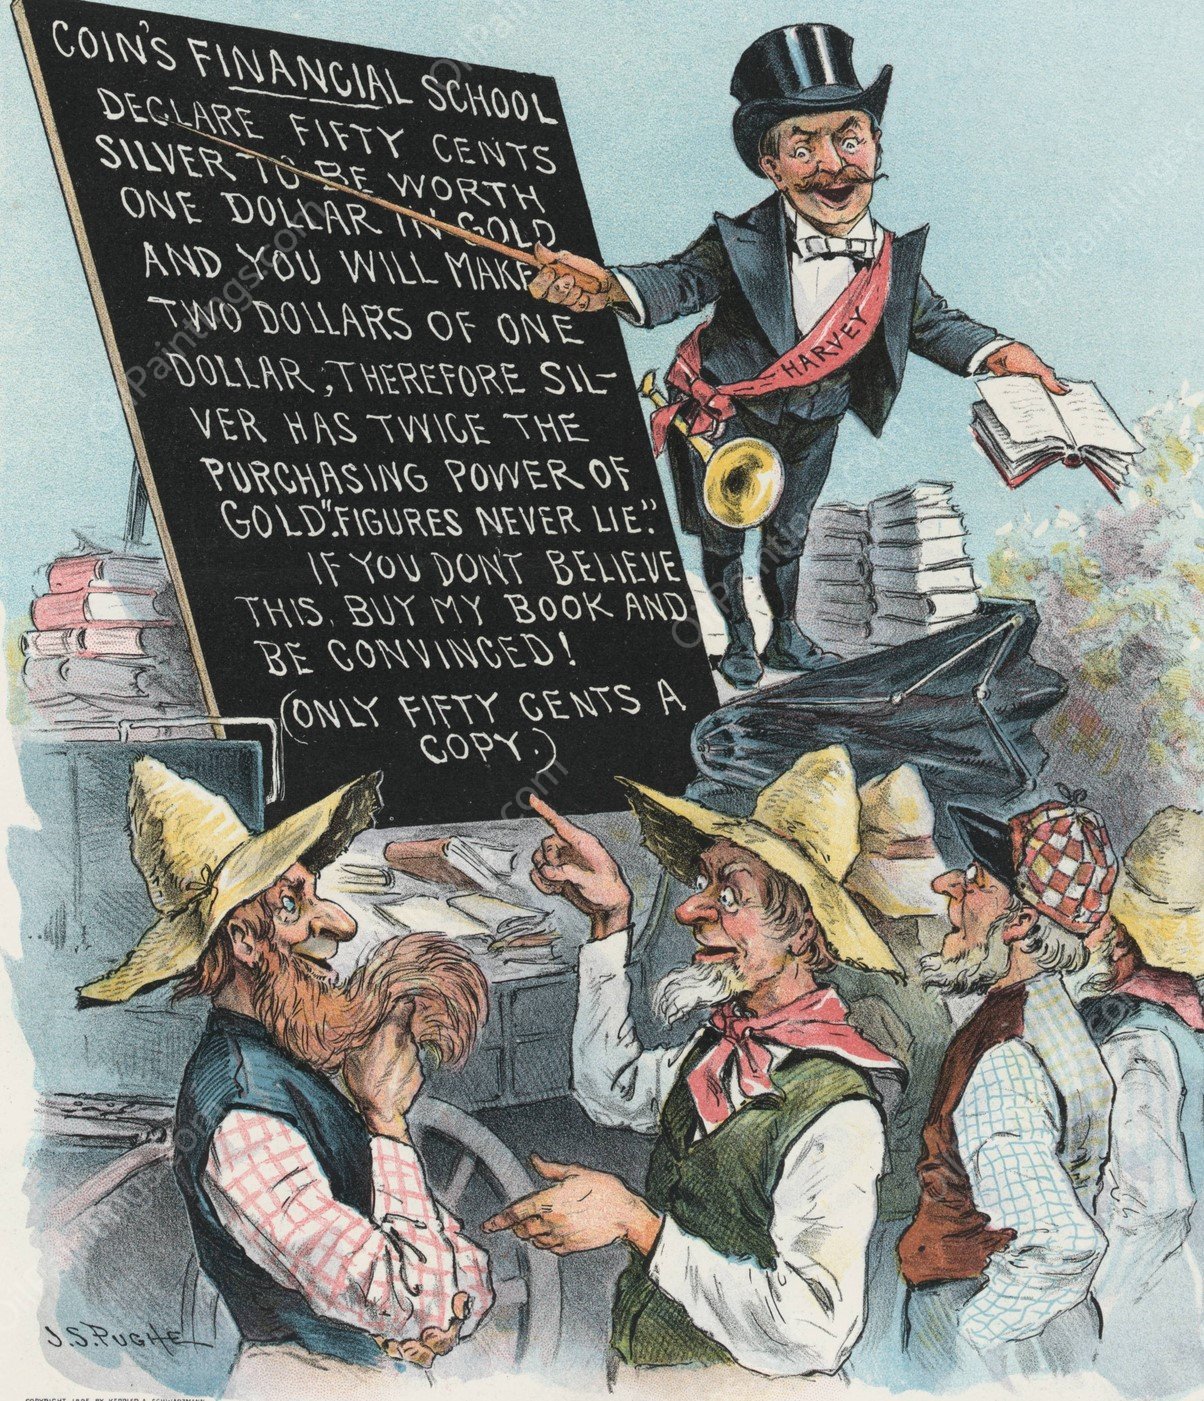 COIN'S FINANCIAL SCHOOL
DECLARE FIFTY CENTS
SILVER TO BE WORTH
ONE DOLLAR IN GOLD
AND YOU WILL MAKE
TWO DOLLARS OF ONE
DOLLAR, THEREFORE SIL-
VER HAS TWICE THE
PURCHASING POWER OF
GOLD. "FIGURES NEVER LIE."
IF YOU DON'T BELIEVE
THIS, BUY MY BOOK AND
BE CONVINCED!
(ONLY FIFTY CENTS A
COPY.)
HARVEY
J.S. PUGHE
COPYRIGHT 1895 BY KEPPLER & SCHWARZMANN
OilPaintings.com